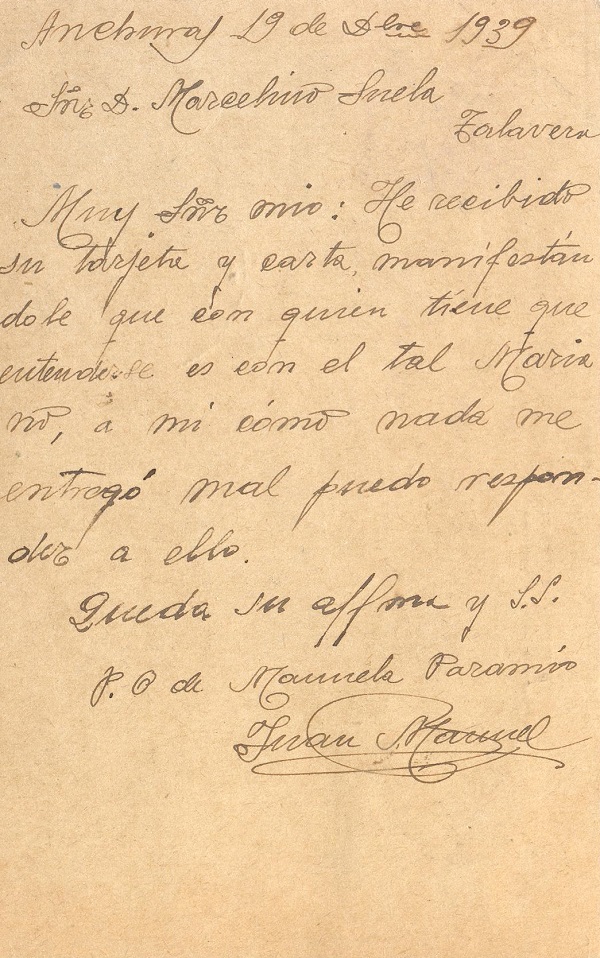 Anchuras 19 de Dbre 1939
Sñr D. Marcelino Suela
Talavera
Muy Sñr mio: He recibido
su tarjeta y carta, manifestán
dole que con quien tiene que
entenderse es con el tal Maria
no, a mi cómo nada me
entregó mal puedo respon-
der a ello.
Queda su affma y S.S.
P.O de Manuela Paramio
Juan Manuel